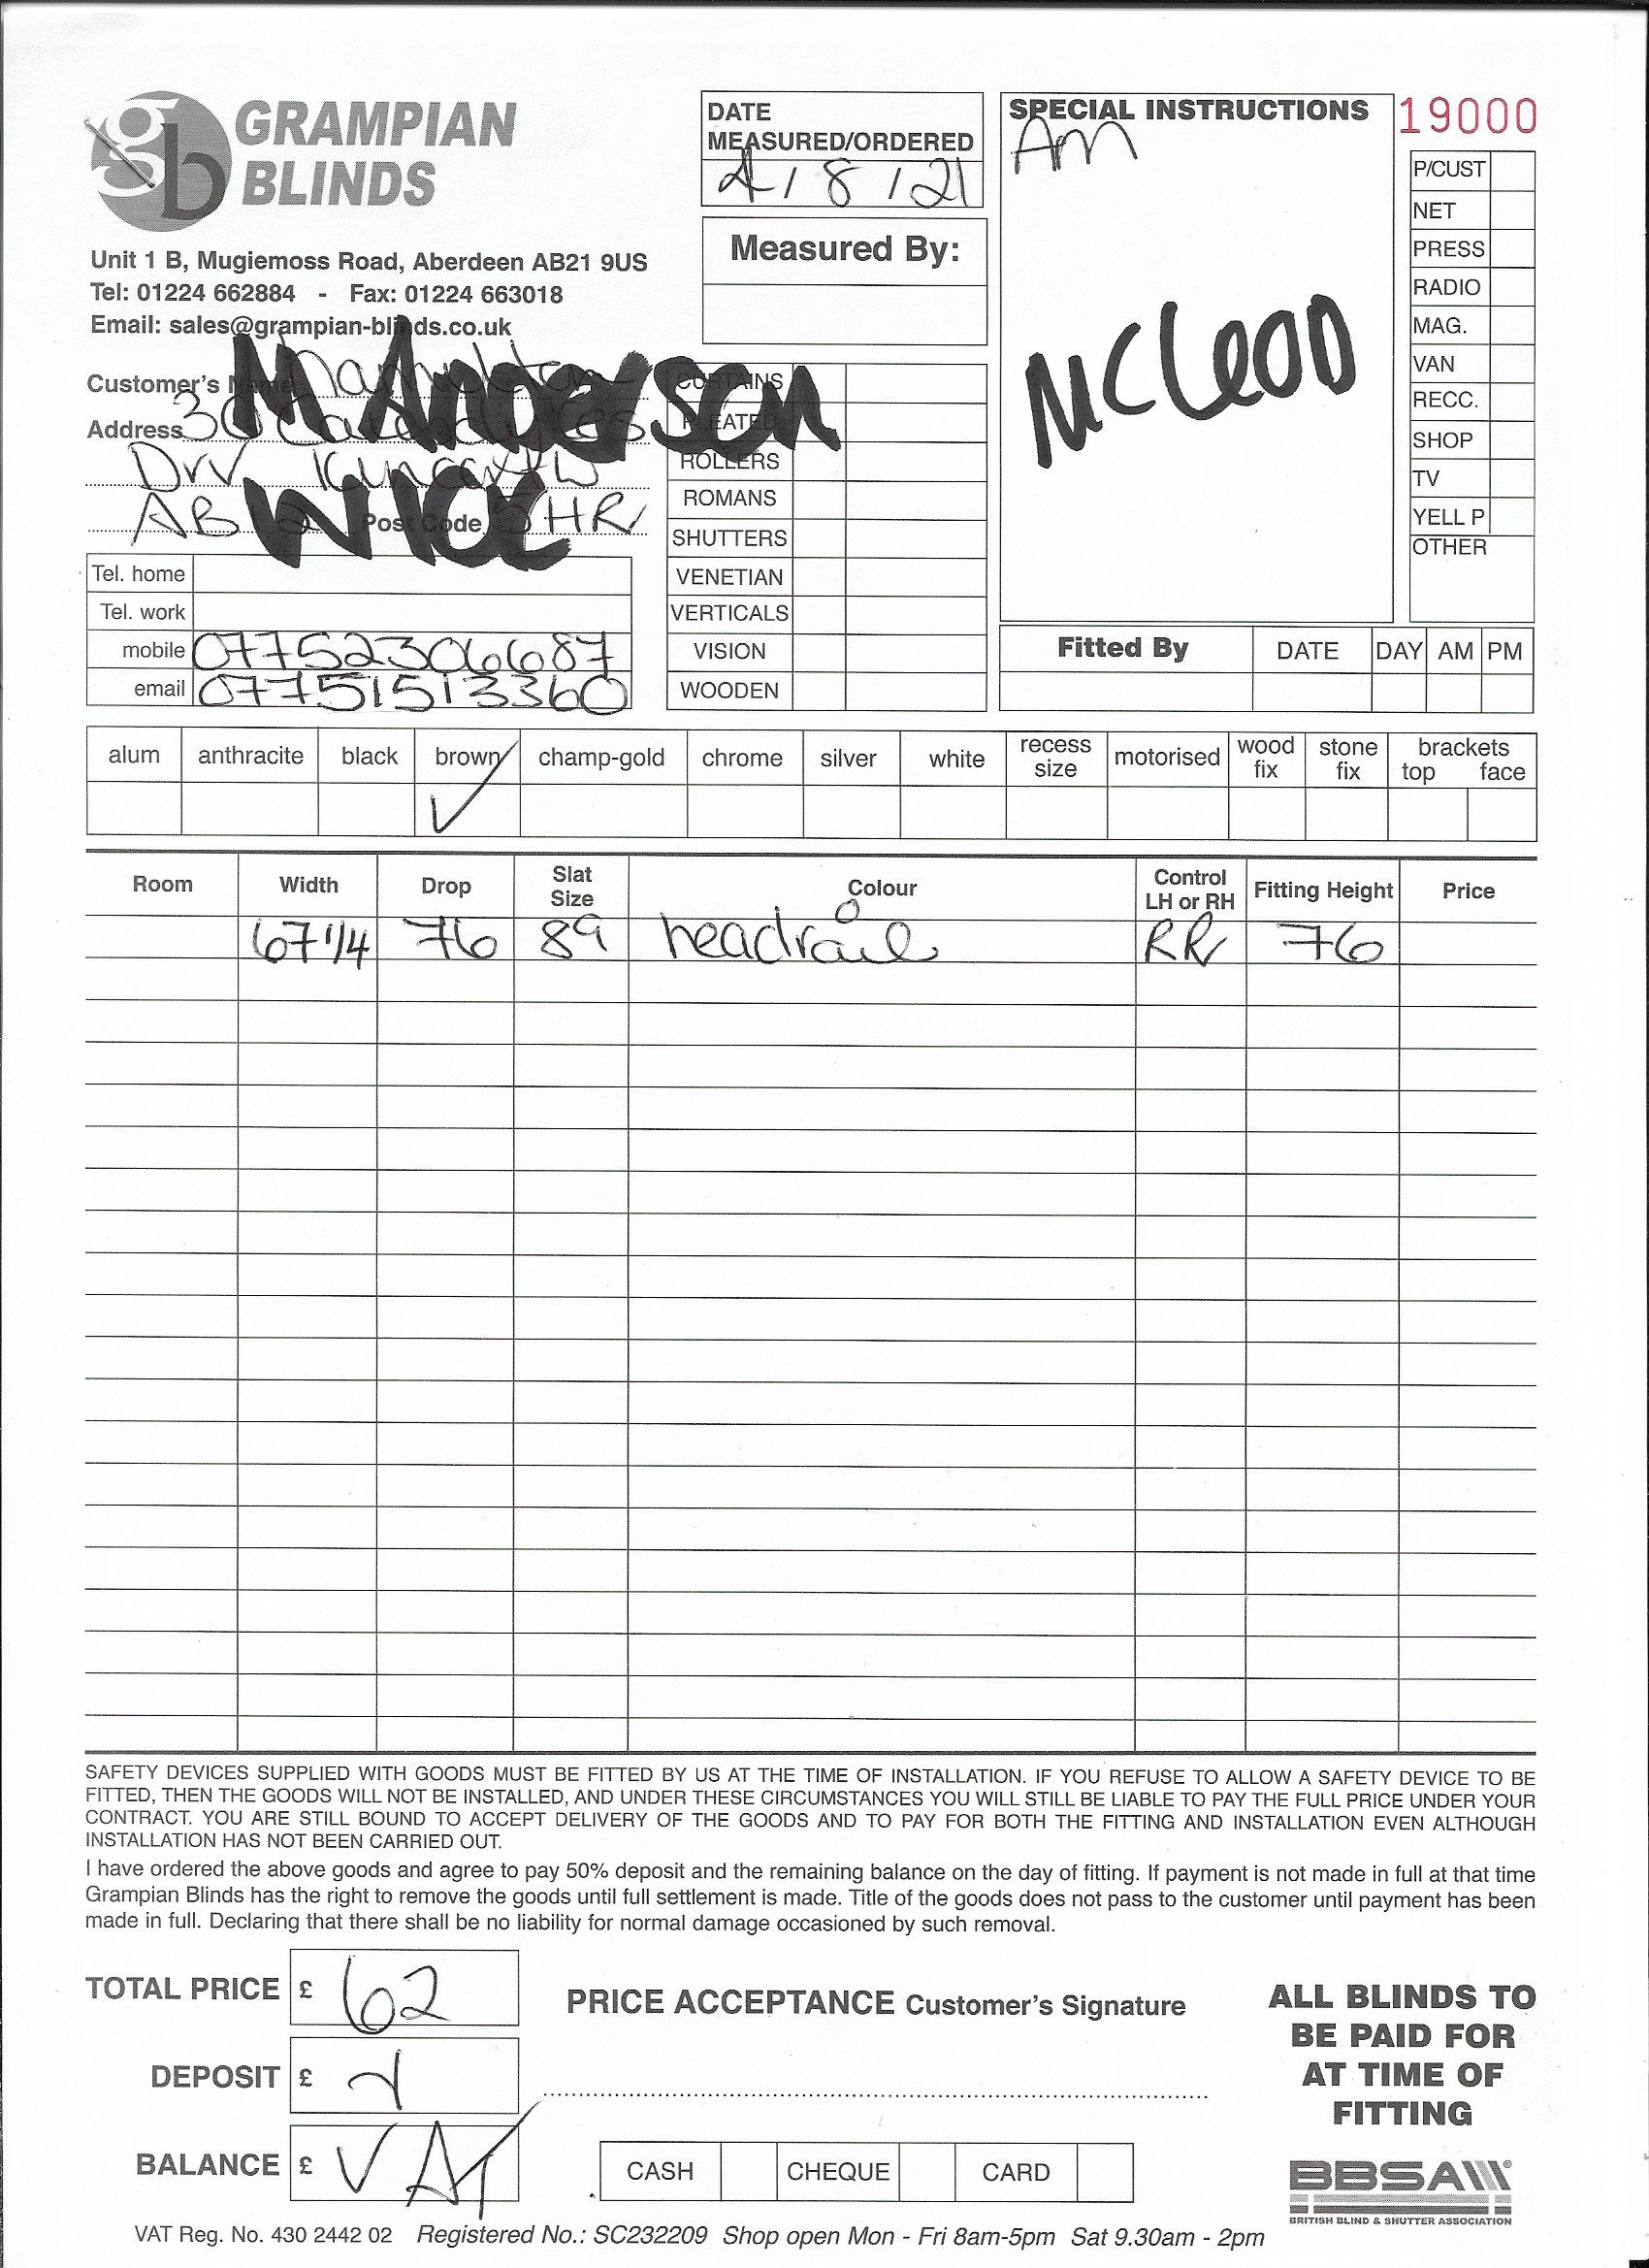 GRAMPIAN
BLINDS
Unit 1 B, Mugiemoss Road, Aberdeen AB21 9US
Tel: 01224 662884 - Fax: 01224 663018
Email: sales@grampian-blinds.co.uk
DATE
MEASURED/ORDERED
4 / 8 / 21
Measured By:
SPECIAL INSTRUCTIONS
Am
McLeod
19000
P/CUST
NET
PRESS
RADIO
MAG.
VAN
RECC.
SHOP
TV
YELL P
OTHER
Customer's Name
M Anderson
Address 30
Drv
AB Post Code HR
Wick
Tel. home
Tel. work
mobile 07752306687
email 07751513360
CURTAINS
PLEATED
ROLLERS
ROMANS
SHUTTERS
VENETIAN
VERTICALS
VISION
WOODEN
Fitted By DATE DAY AM PM
alum anthracite black brown champ-gold chrome silver white recess size motorised wood fix stone fix brackets top face
✓
Room Width Drop Slat Size Colour Control LH or RH Fitting Height Price
67 1/4 76 89 headrail RR 76
SAFETY DEVICES SUPPLIED WITH GOODS MUST BE FITTED BY US AT THE TIME OF INSTALLATION. IF YOU REFUSE TO ALLOW A SAFETY DEVICE TO BE
FITTED, THEN THE GOODS WILL NOT BE INSTALLED, AND UNDER THESE CIRCUMSTANCES YOU WILL STILL BE LIABLE TO PAY THE FULL PRICE UNDER YOUR
CONTRACT. YOU ARE STILL BOUND TO ACCEPT DELIVERY OF THE GOODS AND TO PAY FOR BOTH THE FITTING AND INSTALLATION EVEN ALTHOUGH
INSTALLATION HAS NOT BEEN CARRIED OUT.
I have ordered the above goods and agree to pay 50% deposit and the remaining balance on the day of fitting. If payment is not made in full at that time
Grampian Blinds has the right to remove the goods until full settlement is made. Title of the goods does not pass to the customer until payment has been
made in full. Declaring that there shall be no liability for normal damage occasioned by such removal.
TOTAL PRICE £ 62
DEPOSIT £
BALANCE £ VAT
PRICE ACCEPTANCE Customer's Signature
CASH CHEQUE CARD
ALL BLINDS TO
BE PAID FOR
AT TIME OF
FITTING
BBSA
BRITISH BLIND & SHUTTER ASSOCIATION
VAT Reg. No. 430 2442 02 Registered No.: SC232209 Shop open Mon - Fri 8am-5pm Sat 9.30am - 2pm